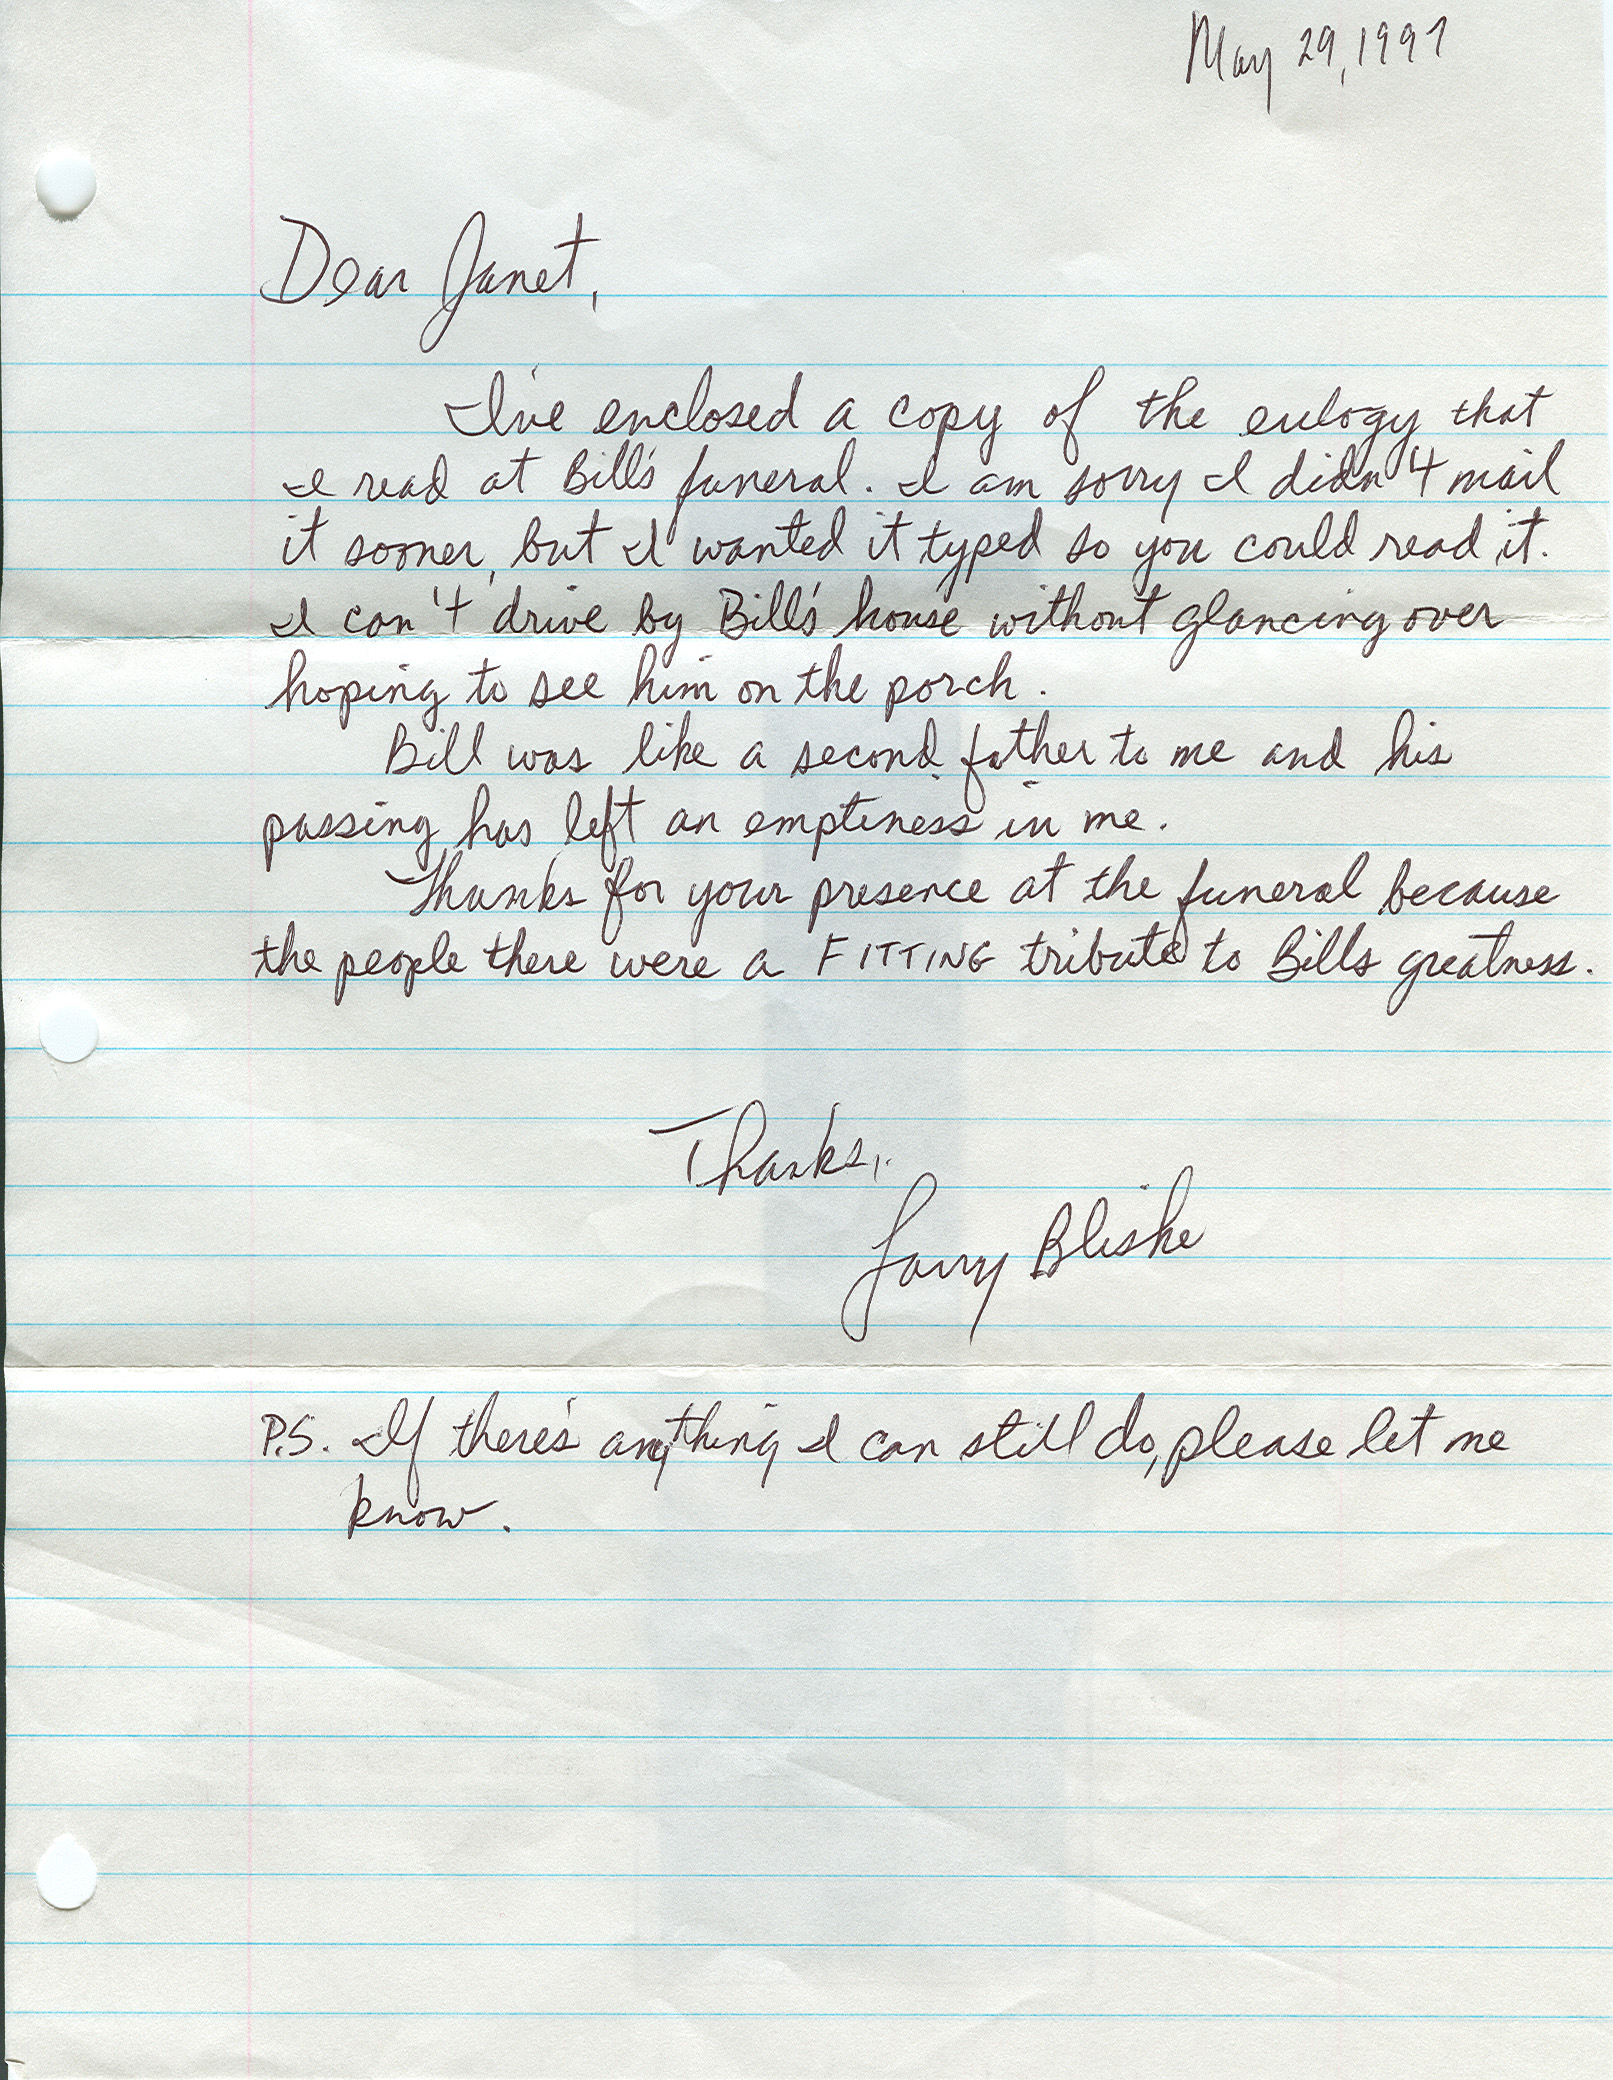 May 29, 1997
Dear Janet,
I've enclosed a copy of the eulogy that
I read at Bill's funeral. I am sorry I didn't mail
it sooner, but I wanted it typed so you could read it.
I can't drive by Bill's house without glancing over
hoping to see him on the porch.
Bill was like a second father to me and his
passing has left an emptiness in me.
Thanks for your presence at the funeral because
the people there were a FITTING tribute to Bill's greatness.
Thanks,
Larry Bliske
P.S. If there's anything I can still do, please let me
know.